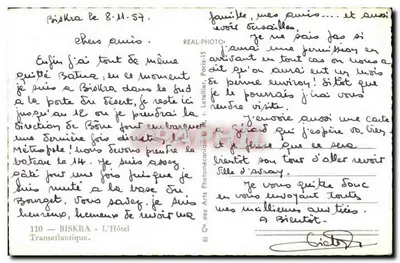 Biskra le 8.11.57.
chers amis.
Enfin j'ai tout de même
quitté Batna, en ce moment
je suis a Biskra dans le sud
a la porte du désert, je reste ici
jusqu'au 12 ou je prendrai la
direction de Bône pour embarquer
une dernière fois direction la
Métropole! nous devons prendre le
bateau le 14. Je suis assez
gâté pour une fois puisque je
suis muté a la base du
Bourget, vous savez je suis
heureux, heureux de revoir ma
110 — BISKRA — L'Hôtel
Transatlantique.
REAL-PHOTO
Cie des Arts Photomécaniques Paris-15
famille, mes amis.... et aussi
revoir Versailles.
Je ne sais pas si
j'aurai une permission en
arrivant en tout cas on nous a
dit qu'on aurait est un mois
de permme environ! Sitôt que
je le pourrais j'irai vous
rendre visite.
J'envoie aussi une carte
et je pense que ce sera
bientôt son tour d'aller revoir
Ville d'Avray.
Je vous quitte donc
en vous envoyant toutes
mes meilleures amitiées.
A Bientôt.